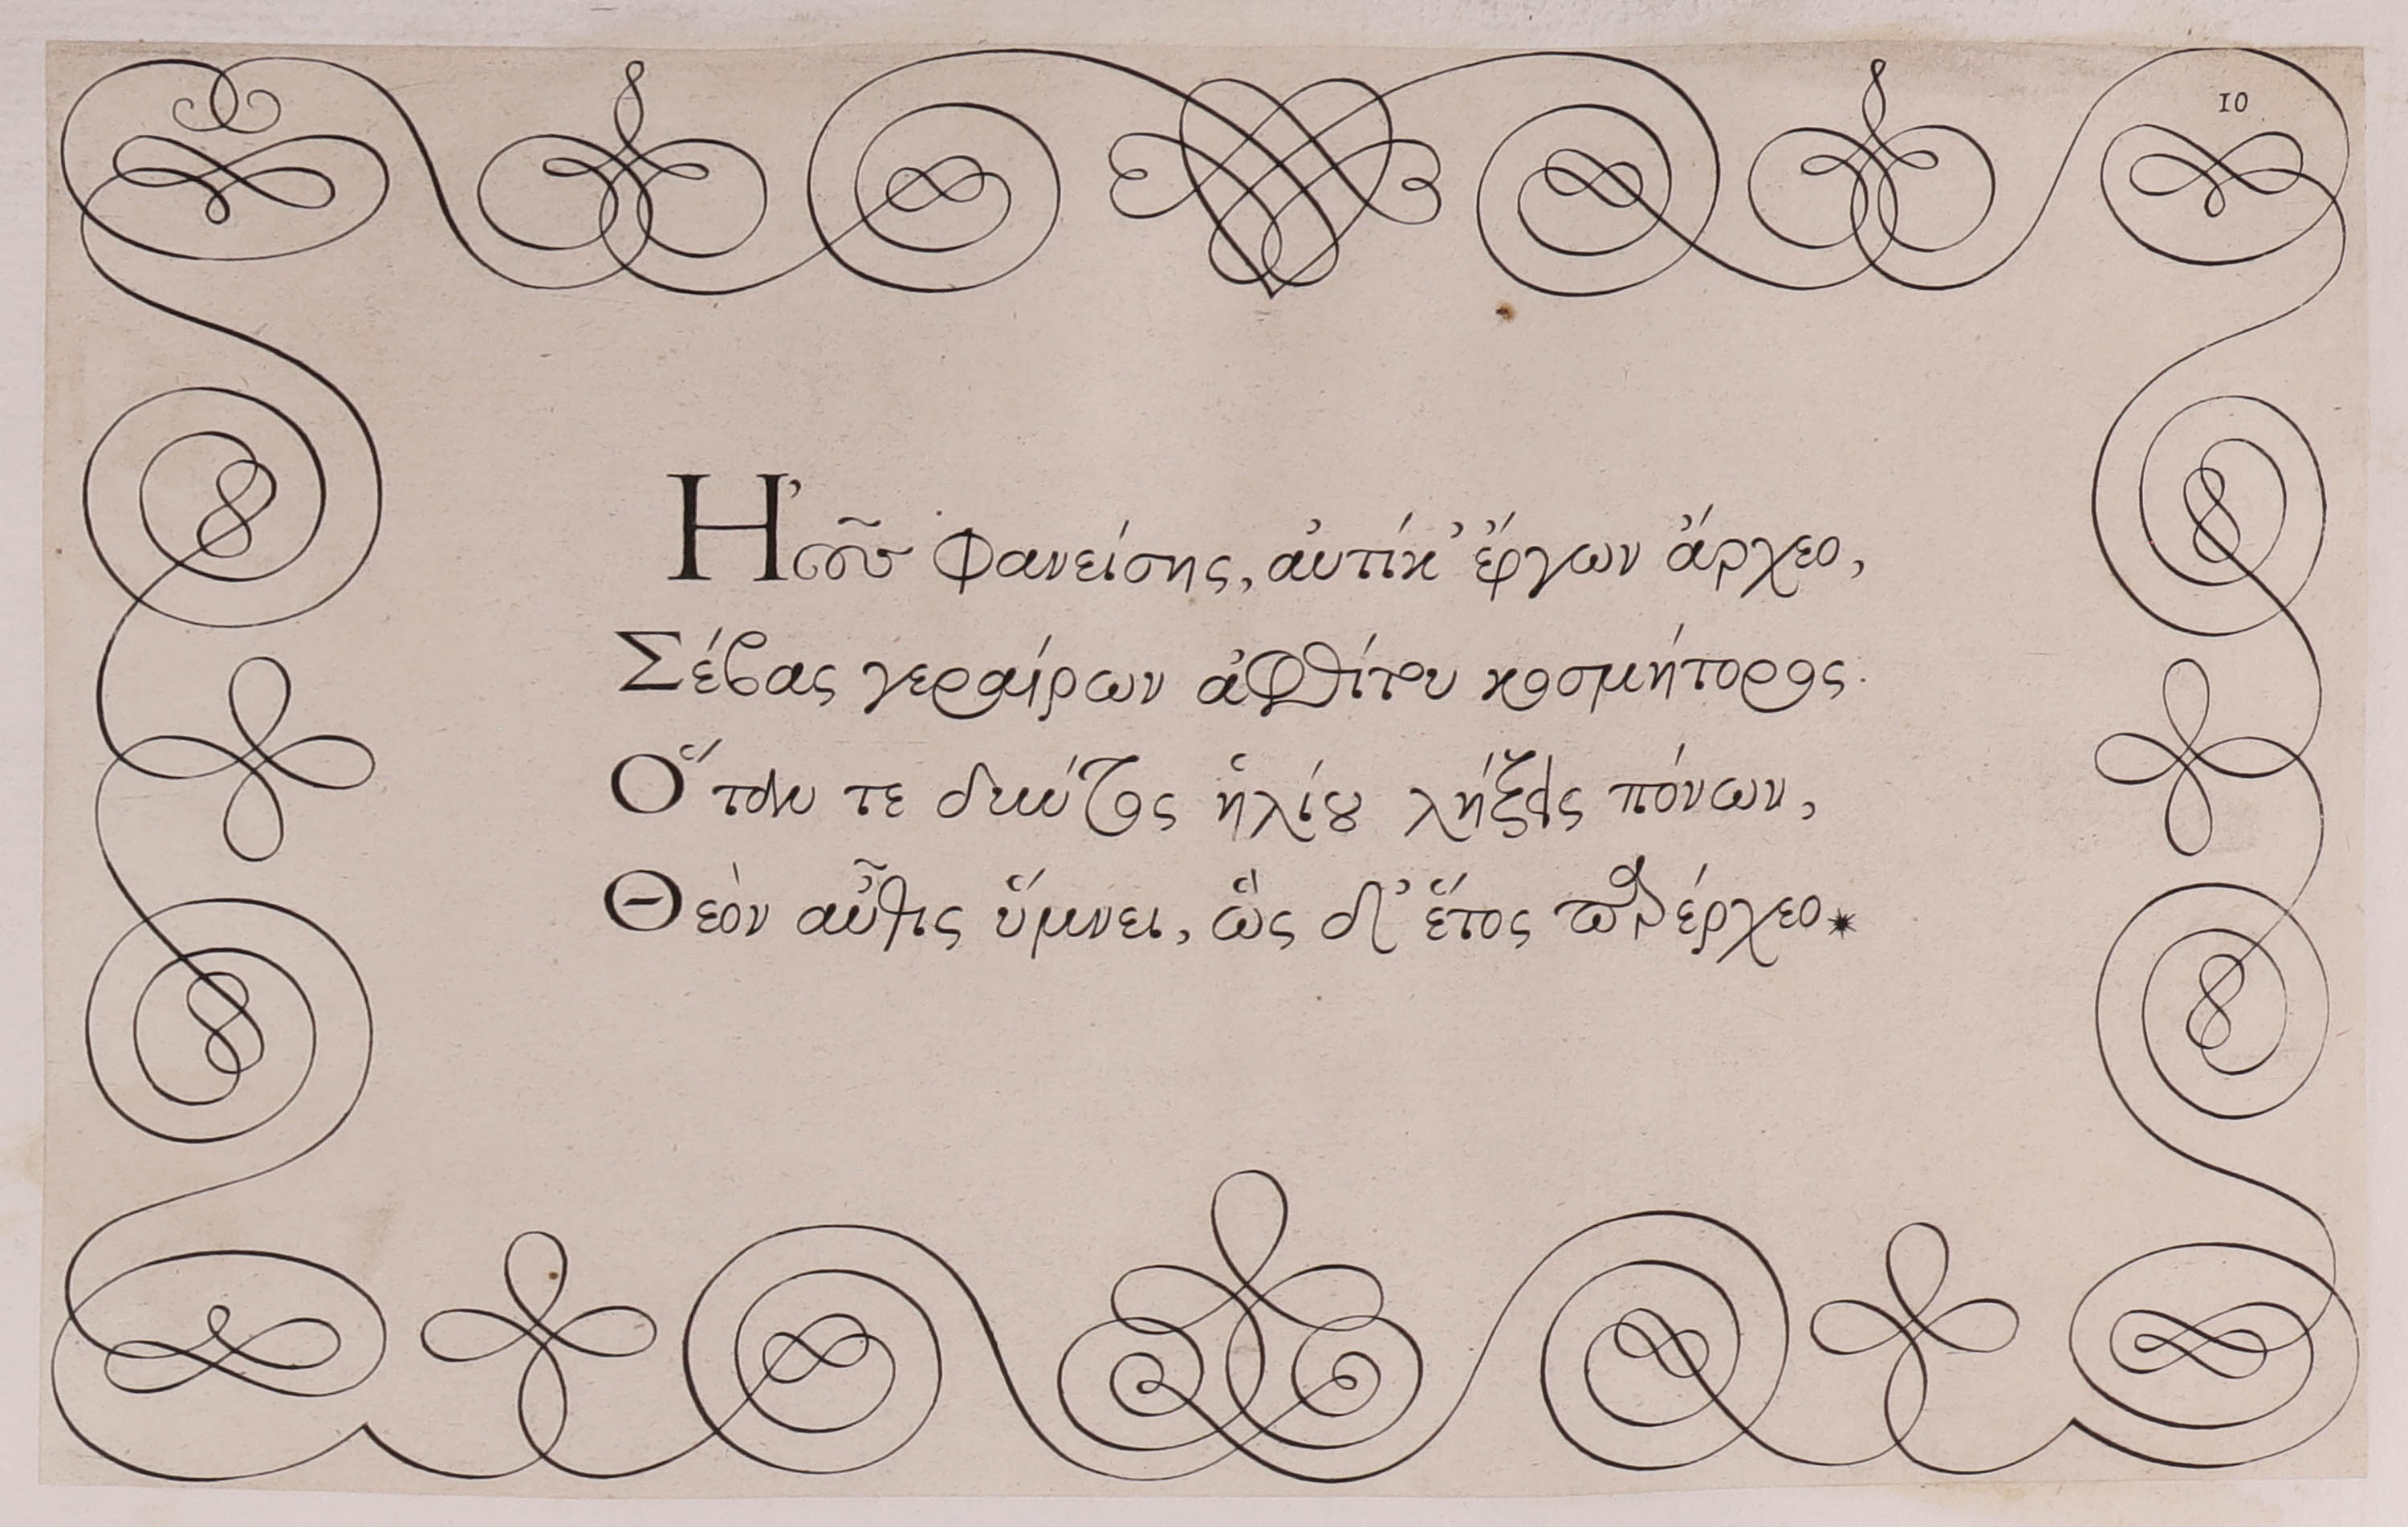 10
Ἠοῦς φανείσης, αὐτίκ' ἔργων ἄρχεο,
Σέβας γεραίρων ἀφθίτου κοσμήτορος.
Ὅταν τε δεύτος ἡλίου λήξῃς πόνων,
Θεὸν αὖθις ὕμνει, ὣς δ' ἔτος περιέρχεο*